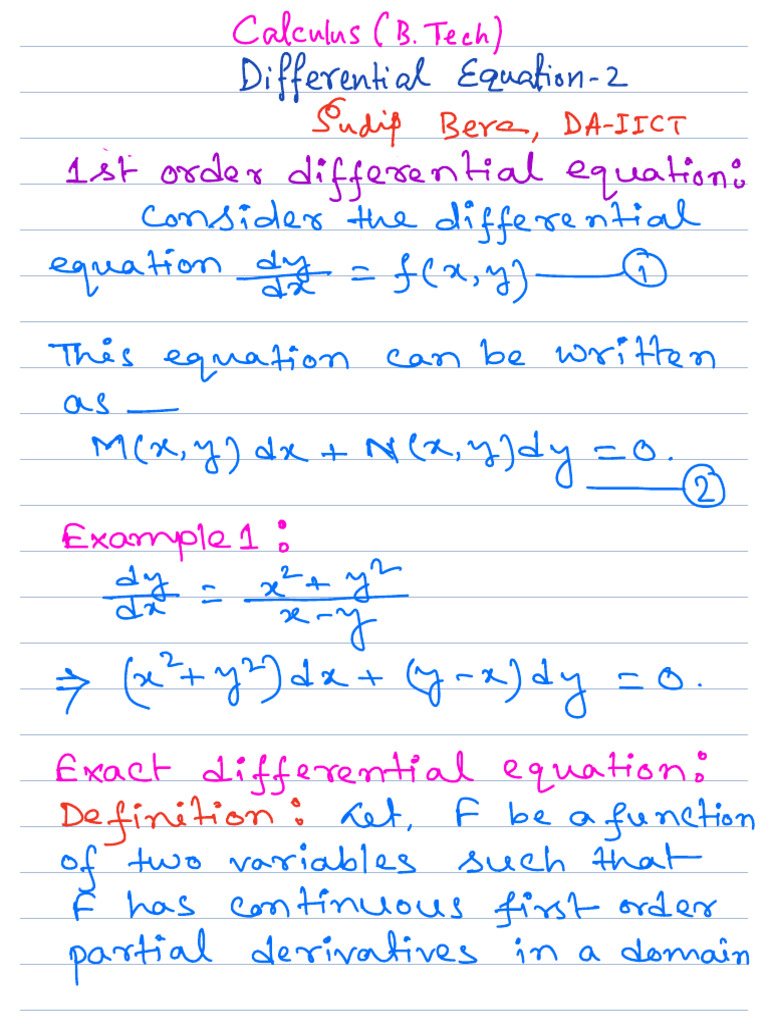 Calculus (B. Tech)
Differential Equation-2
Sudip Bera, DA-IICT
1st order differential equation:
Consider the differential
equation dy/dx = f(x, y) —— ①
This equation can be written
as —
M(x, y) dx + N(x, y) dy = 0.
—— ②
Example 1:
dy/dx = (x² + y²)/(x - y)
⇒ (x² + y²) dx + (y - x) dy = 0.
Exact differential equation:
Definition: Let, F be a function
of two variables such that
F has continuous first order
partial derivatives in a domain